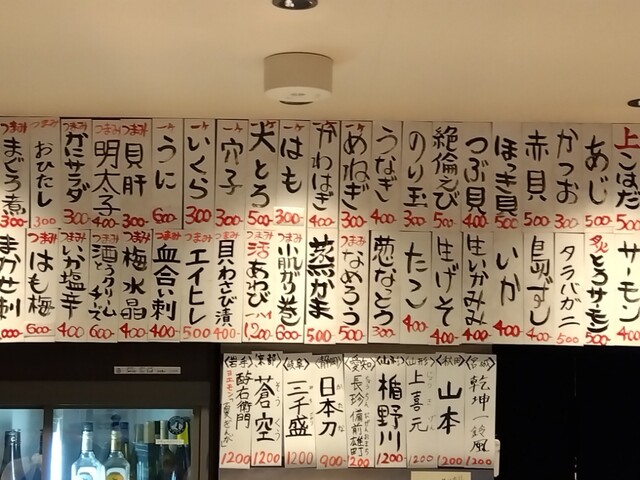 上こはだ 500
あじ 500
かつお 300
赤貝 500
ほっき貝 500
つぶ貝 400
絶倫えび 500
のり玉 300
うなぎ 400
一ヶ めねぎ 300
一ヶ かわはぎ 400
一ヶ はも 300
大とろ 500
一ヶ 穴子 300
一ヶ いくら 300
一ヶ うに 600
つまみ 貝肝 300
つまみ 明太子 400
つまみ かにサラダ 300
つまみ おひたし 300
つまみ まぐろ煮 300
サーモン 400
炙 とろサーモン 500
タラバガニ 500
島ずし 400
いか 400
生いかみみ 400
生げそ 400
たこ 400
葱なっとう 300
つまみ なめろう 500
蒸かま 500
つまみ 肌がり巻き 600
つまみ 活あわび 1200
貝わさび漬 400
つまみ エイヒレ 500
つまみ 血合い刺 400
つまみ 梅水晶 400
つまみ 酒とうクリームチーズ 400
つまみ いか塩辛 400
つまみ はも梅 600
まかせ刺
<宮城> 乾坤一 鈴風 1200
<秋田> 山本 1200
<山形> 上喜元 1200
<山形> 楯野川 1200
<愛知> 長珍 備前雄町 1200
<静岡> 日本刀 900
<岐阜> 三千盛 1200
<京都> 蒼空 1200
<岩手> 酔右衛門 1200